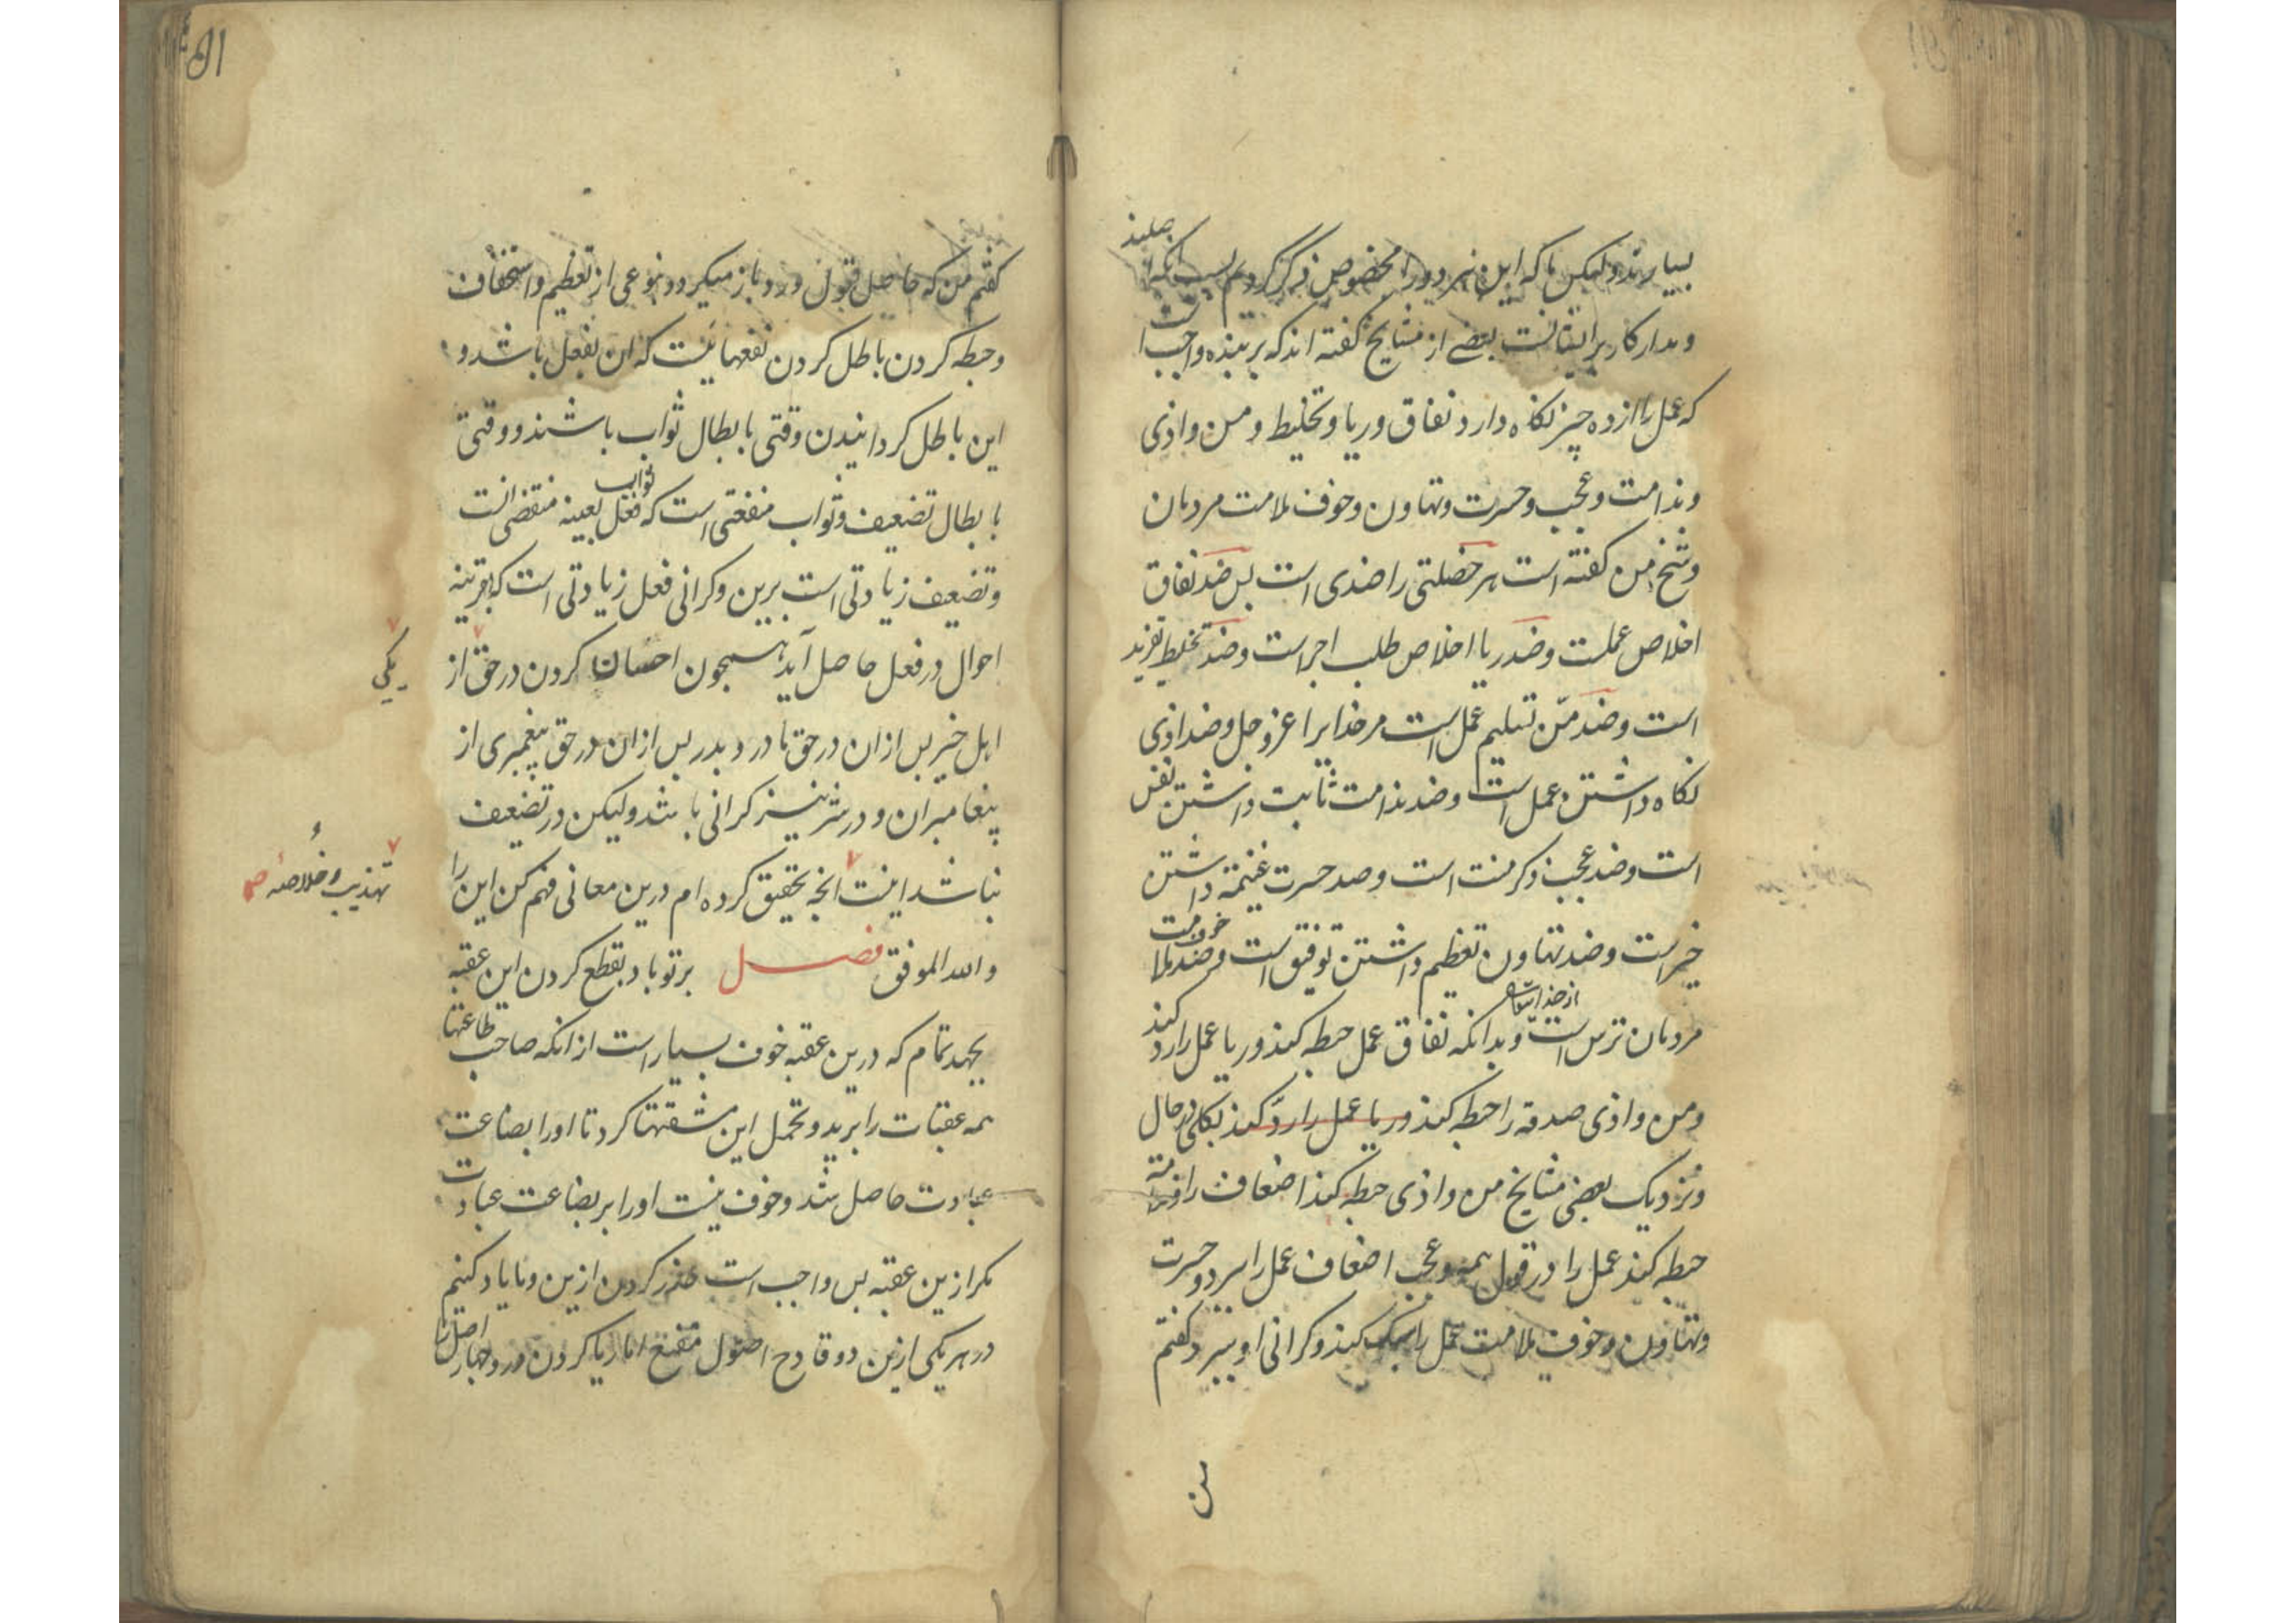 بسیارند ولیکن ما که این هر دو را مخصوص ذکر کردیم بسبب آنکه اصلیند
و مدار کار بر ایشانست بعضے از مشایخ کفته اند که بر بنده واجب است
که عمل را از ده چیز نکاه دارد نفاق و ریا و تخلیط و من و اذی
و ندامت و عجب و حسرت و تهاون و خوف ملامت مردمان
و شیخ من کفته است هر خصلتی را ضدی است پس ضد نفاق
اخلاص عملست و ضد ریا اخلاص طلب اجر است و ضد تخلیط تفرید
است و ضد منّ تسلیم عمل است مر خدایرا عز وجل و ضد اذی
نکاه داشتن عمل است و ضد ندامت ثابت داشتن نفس
است و ضد عجب ذکر منت است و ضد حسرت غنیمة داشتن
خیر است و ضد تهاون تعظیم داشتن توفیق است و ضد خوف ملامت
مردمان ترس است از خدایتعالی و بدانکه نفاق عمل حبطه کند و ریا عمل را رد کند
و من و اذی صدقه را حبطه کند و ریا عمل را ردّ کند بکلی در حال
و نزدیک بعضی مشایخ من و اذی حبطه کند اضعاف را
حبطه کند عمل را در قول همه و عجب اضعاف عمل را ببرد و حسرت
و تهاون و خوف ملامت عمل را سبک کند و کرانی او ببرد کفتم
من
کفتم من که حاصل قبول و رد باز میکردد بنوعی از تعظیم و استخفاف
و حبطه کردن باطل کردن نفعهائیست که ان بفعل باشد و
این باطل کردانیدن وقتی بابطال ثواب باشند و وقتی
بابطال تضعیف و ثواب منفعتی است که ثواب فعل بعینه مقتضی انست
و تضعیف زیادتی است برین و کرانی فعل زیادتی است که بقرینه
احوال در فعل حاصل آید همچون احسان کردن در حق از
یکی
اهل خیر پس از ان در حق مادر و پدر پس از ان در حق پیغمبری از
پیغامبران و در شر نیز کرانی باشد ولیکن در تضعف
نباشد اینست انچه تحقیق کرده ام درین معانی فهم کن این را
تهذیب و خلاصه
و الله الموفق فصل بر تو باد بقطع کردن این عقبه
بجهد تمام که درین عقبه خوف بسیار است از انکه صاحب طاعتها
همه عقبات را برید و تحمل این مشقتها کرد تا او را بضاعت
عبادت حاصل شد و خوف نیست او را بر بضاعت عبادت
مکر ازین عقبه پس واجب است حذر کردن ازین و ما یاد کنیم
در هر یکی ازین دو قادح اصول مقنع اما ریا کردن در و چهار اصل را